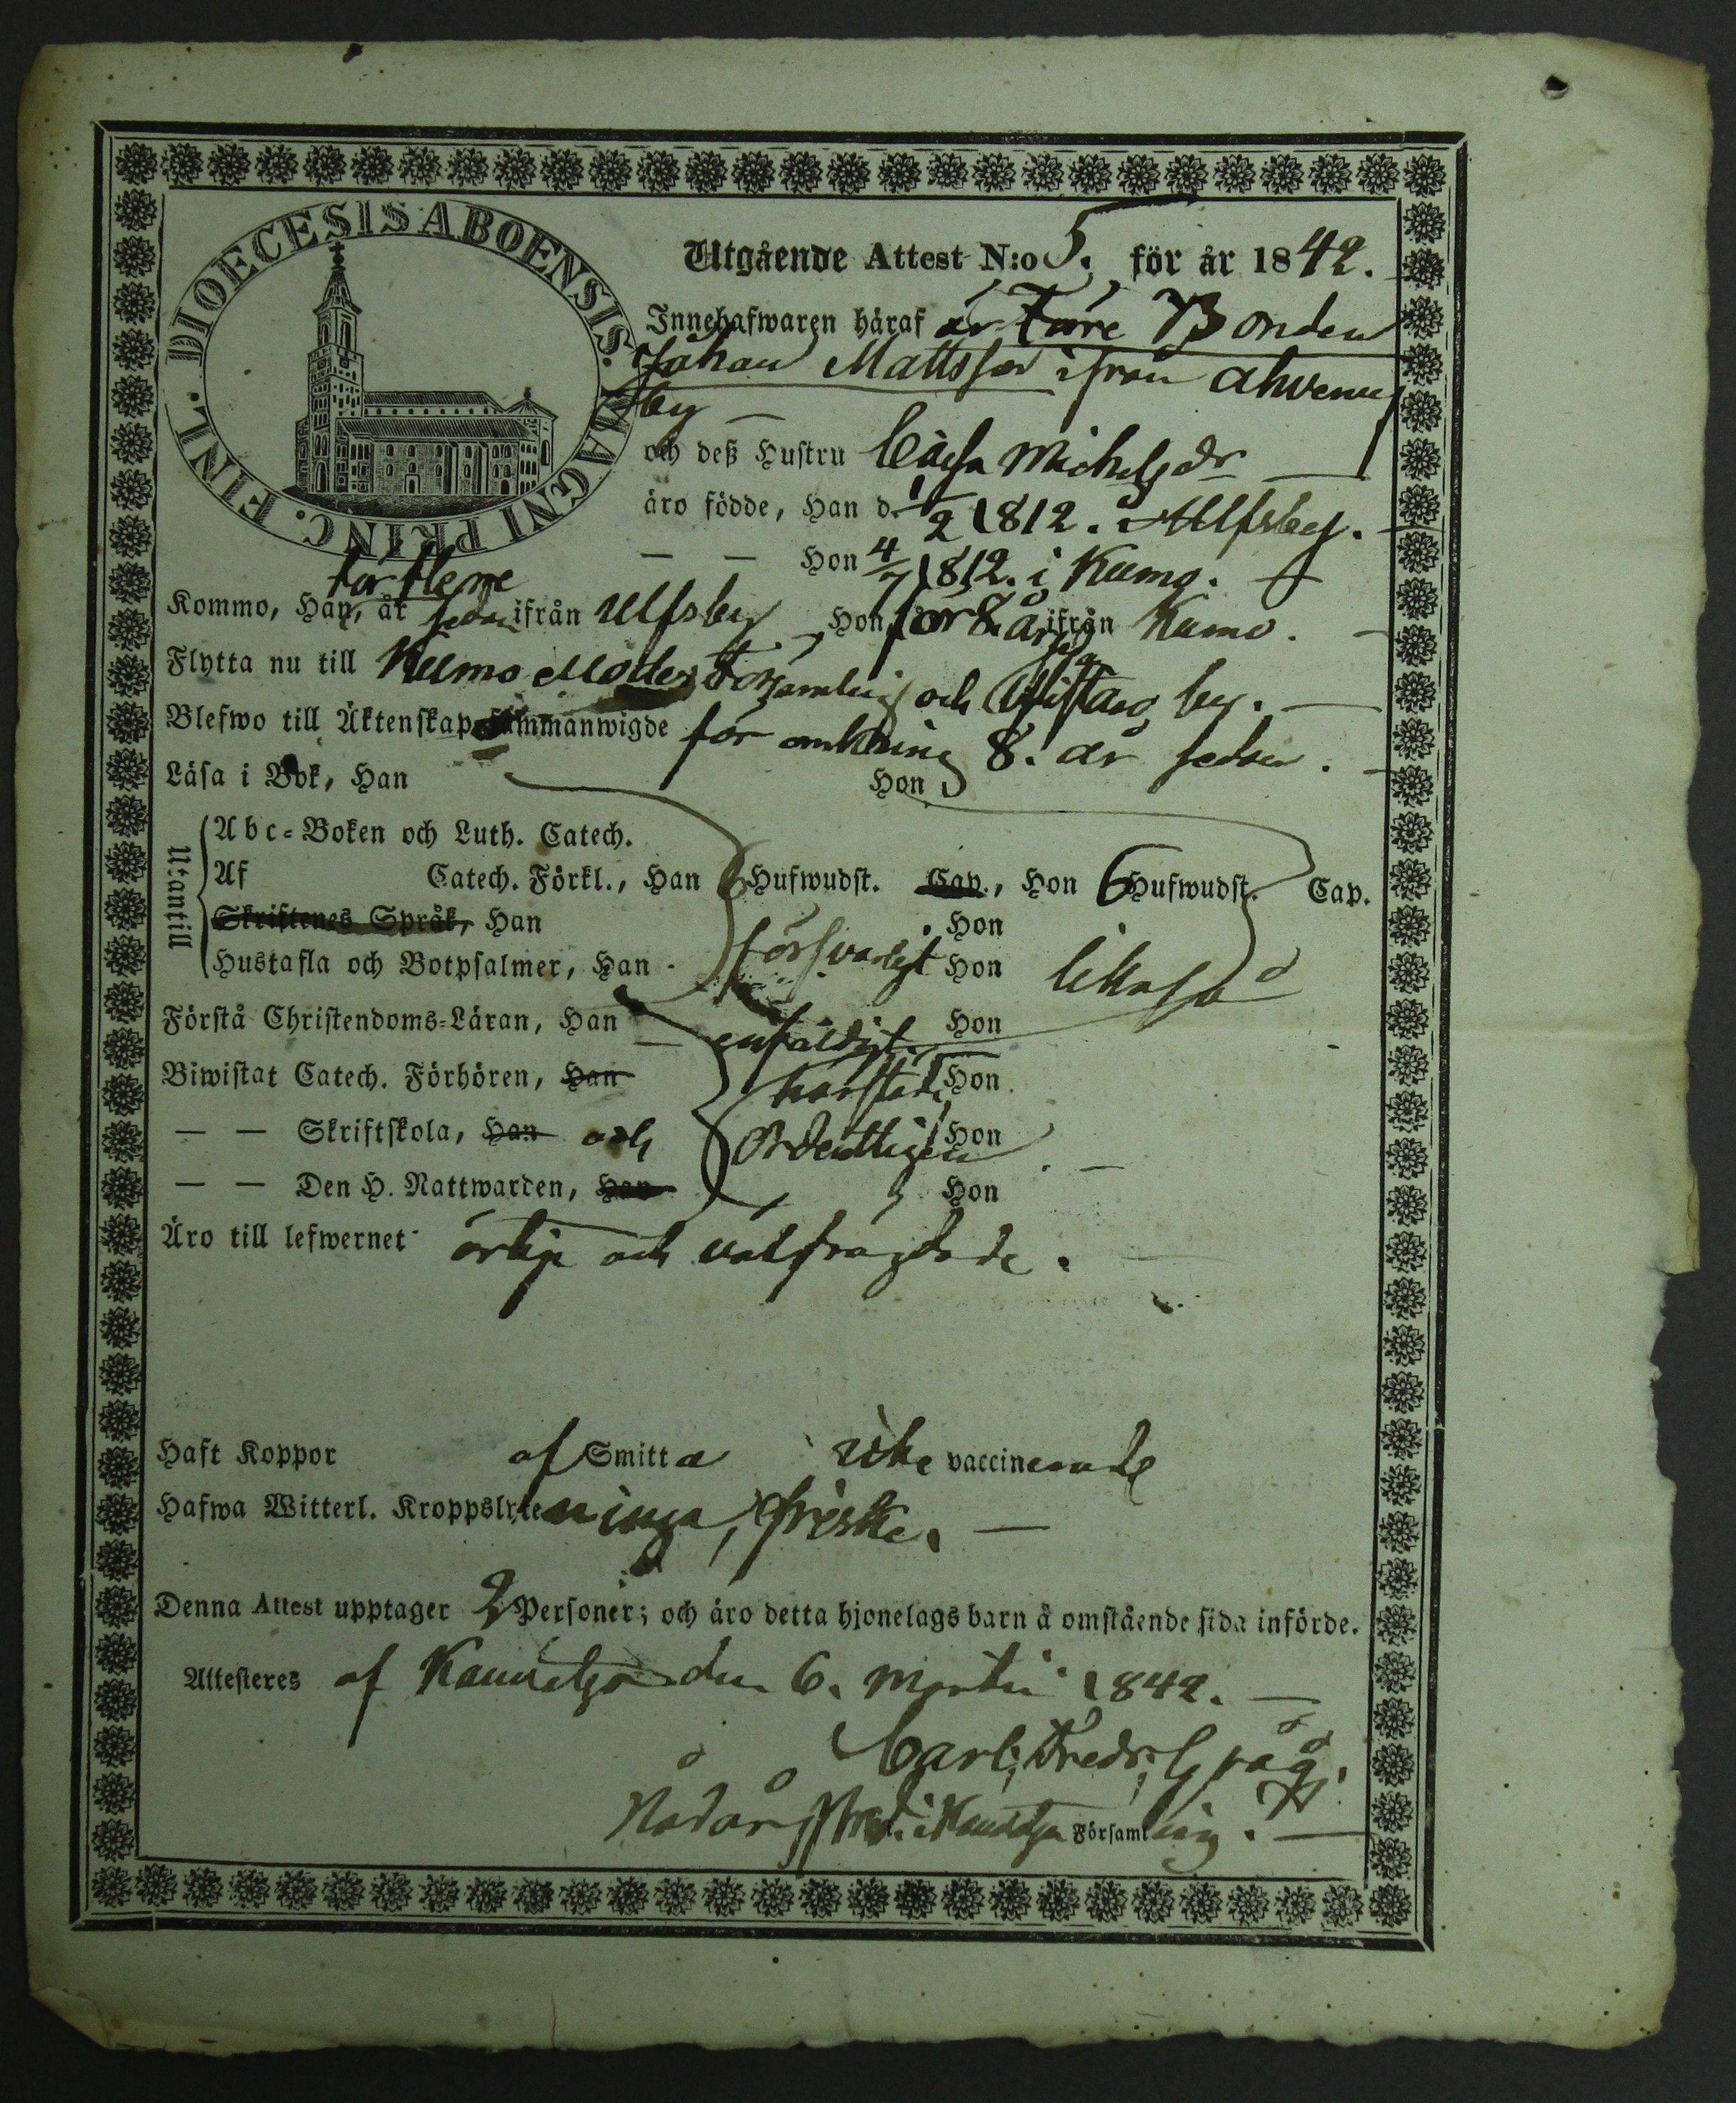 DIOECESIS ABOENSIS. MAGNI PRINC. FINL.
Utgående Attest N:o 5. för år 1842.
Innehafwaren häraf är Före Bonden
Johan Mattsson ifrån Ahvenus
by —
och deß Hustru Cajsa Michelsdr —
äro födde, Han d. 1/2 1812. i Ulfsby. —
— — Hon 4/7 1812. i Kumo. —
för flere
Kommo, Han, år sedan ifrån Ulfsby, Hon för 8. år sedan ifrån Kumo. —
Flytta nu till Kumo Moder Församling och by. —
Blefwo till Äktenskap sammanwigde för omkring 8. år sedan. —
Läsa i Bok, Han Hon
Utantill
Abc-Boken och Luth. Catech.
Af Catech. Förkl., Han 6 Hufwudst. Cap., Hon 6 Hufwudst. Cap.
Skriftenes Språk, Han Hon
Hustafla och Botpsalmer, Han försvarligt Hon likaså
Förstå Christendoms-Läran, Han — enfaldigt Hon
Biwistat Catech. Förhören, Han härstädes Hon
— — Skriftskola, Han och ordentligen Hon . —
— — Den H. Nattwarden, Han Hon
Äro till lefwernet ärlige och välfrägdade.
Haft Koppor af Smitta icke vaccinerade
Hafwa Witterl. Kroppslyten inga, friske. —
Denna Attest upptager 2 Personer; och äro detta hjonelags barn å omstående sida införde.
Attesteres af Kauvatsa den 6. Martii 1842. —
Carl Fredr.
Nådårs Pred. i Kauvatsa Församling. —